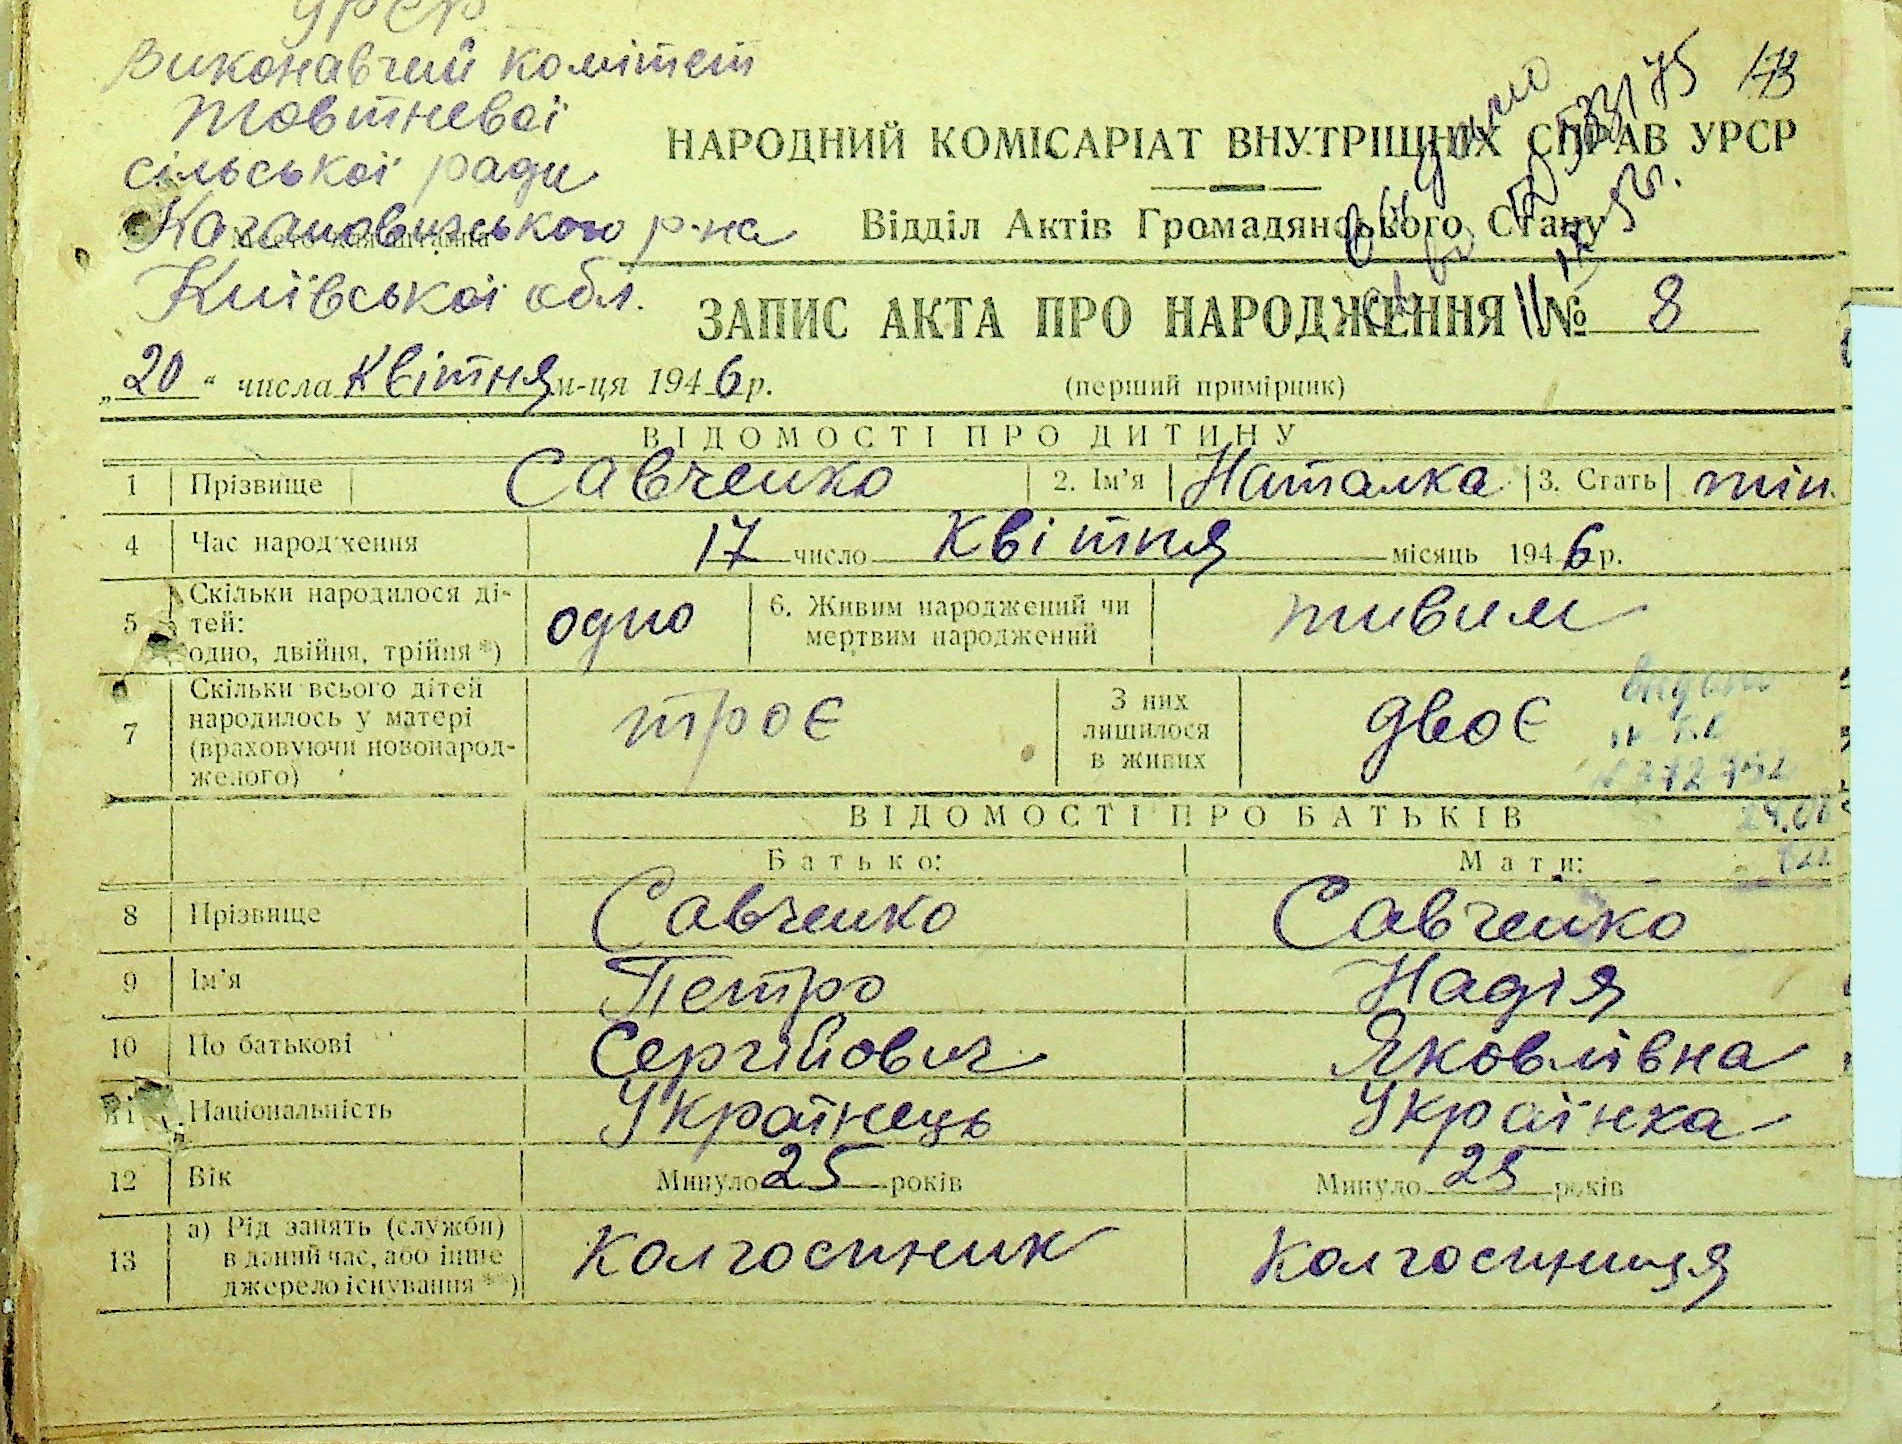 УРСР
Виконавчий комітет
Жовтневої
сільської ради
Кагановичського р-на
Київської обл.
173
НАРОДНИЙ КОМІСАРІАТ ВНУТРІШНІХ СПРАВ УРСР
Відділ Актів Громадянського Стану
ЗАПИС АКТА ПРО НАРОДЖЕННЯ № 8
„20“ числа Квітня м-ця 1946 р.
(перший примірник)
ВІДОМОСТІ ПРО ДИТИНУ
1 Прізвище Савченко 2. Ім'я Наталка 3. Стать жін.
4 Час народження 17 число Квітня місяць 1946 р.
5 Скільки народилося ді-
тей:
одно, двійня, трійня *)
одно
6. Живим народжений чи
мертвим народжений
живим
7 Скільки всього дітей
народилось у матері
(враховуючи новонарод-
желого)
троє
З них
лишилося
в живих
двоє
видано
ВІДОМОСТІ ПРО БАТЬКІВ
Батько: Мати:
8 Прізвище Савченко Савченко
9 Ім'я Петро Надія
10 По батькові Сергійович Яковлівна
11 Національність Українець Українка
12 Вік Минуло 25 років Минуло 25 років
13 а) Рід занять (служби)
в даний час, або інше
джерело існування **)
Колгоспник Колгоспниця